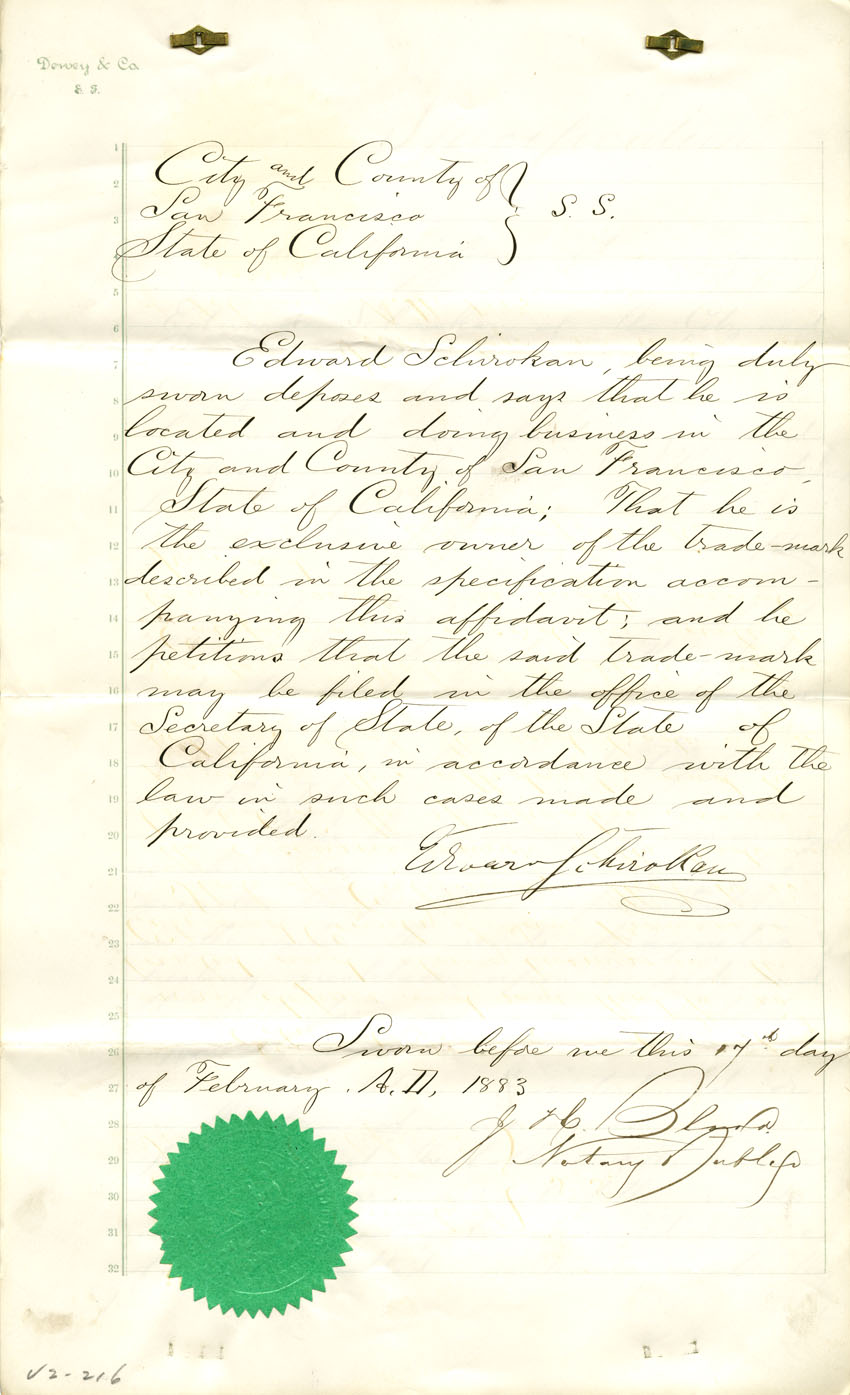 Dewey & Co
S. F.
1
City and County of
2
San Francisco } S. S.
3
State of California
4
5
6
Edward Schirokan, being duly
7
sworn deposes and says that he is
8
located and doing business in the
9
City and County of San Francisco,
10
State of California; That he is
11
the exclusive owner of the trade-mark
12
described in the specification accom-
13
panying this affidavit; and he
14
petitions that the said trade-mark
15
may be filed in the office of the
16
Secretary of State, of the State of
17
California, in accordance with the
18
law in such cases made and
19
provided.
20
Edward Schirokan
21
22
23
24
25
Sworn before me this 17th day
26
of February A.D. 1883
27
J H. Blood
28
Notary Public
29
30
31
32
V2-216